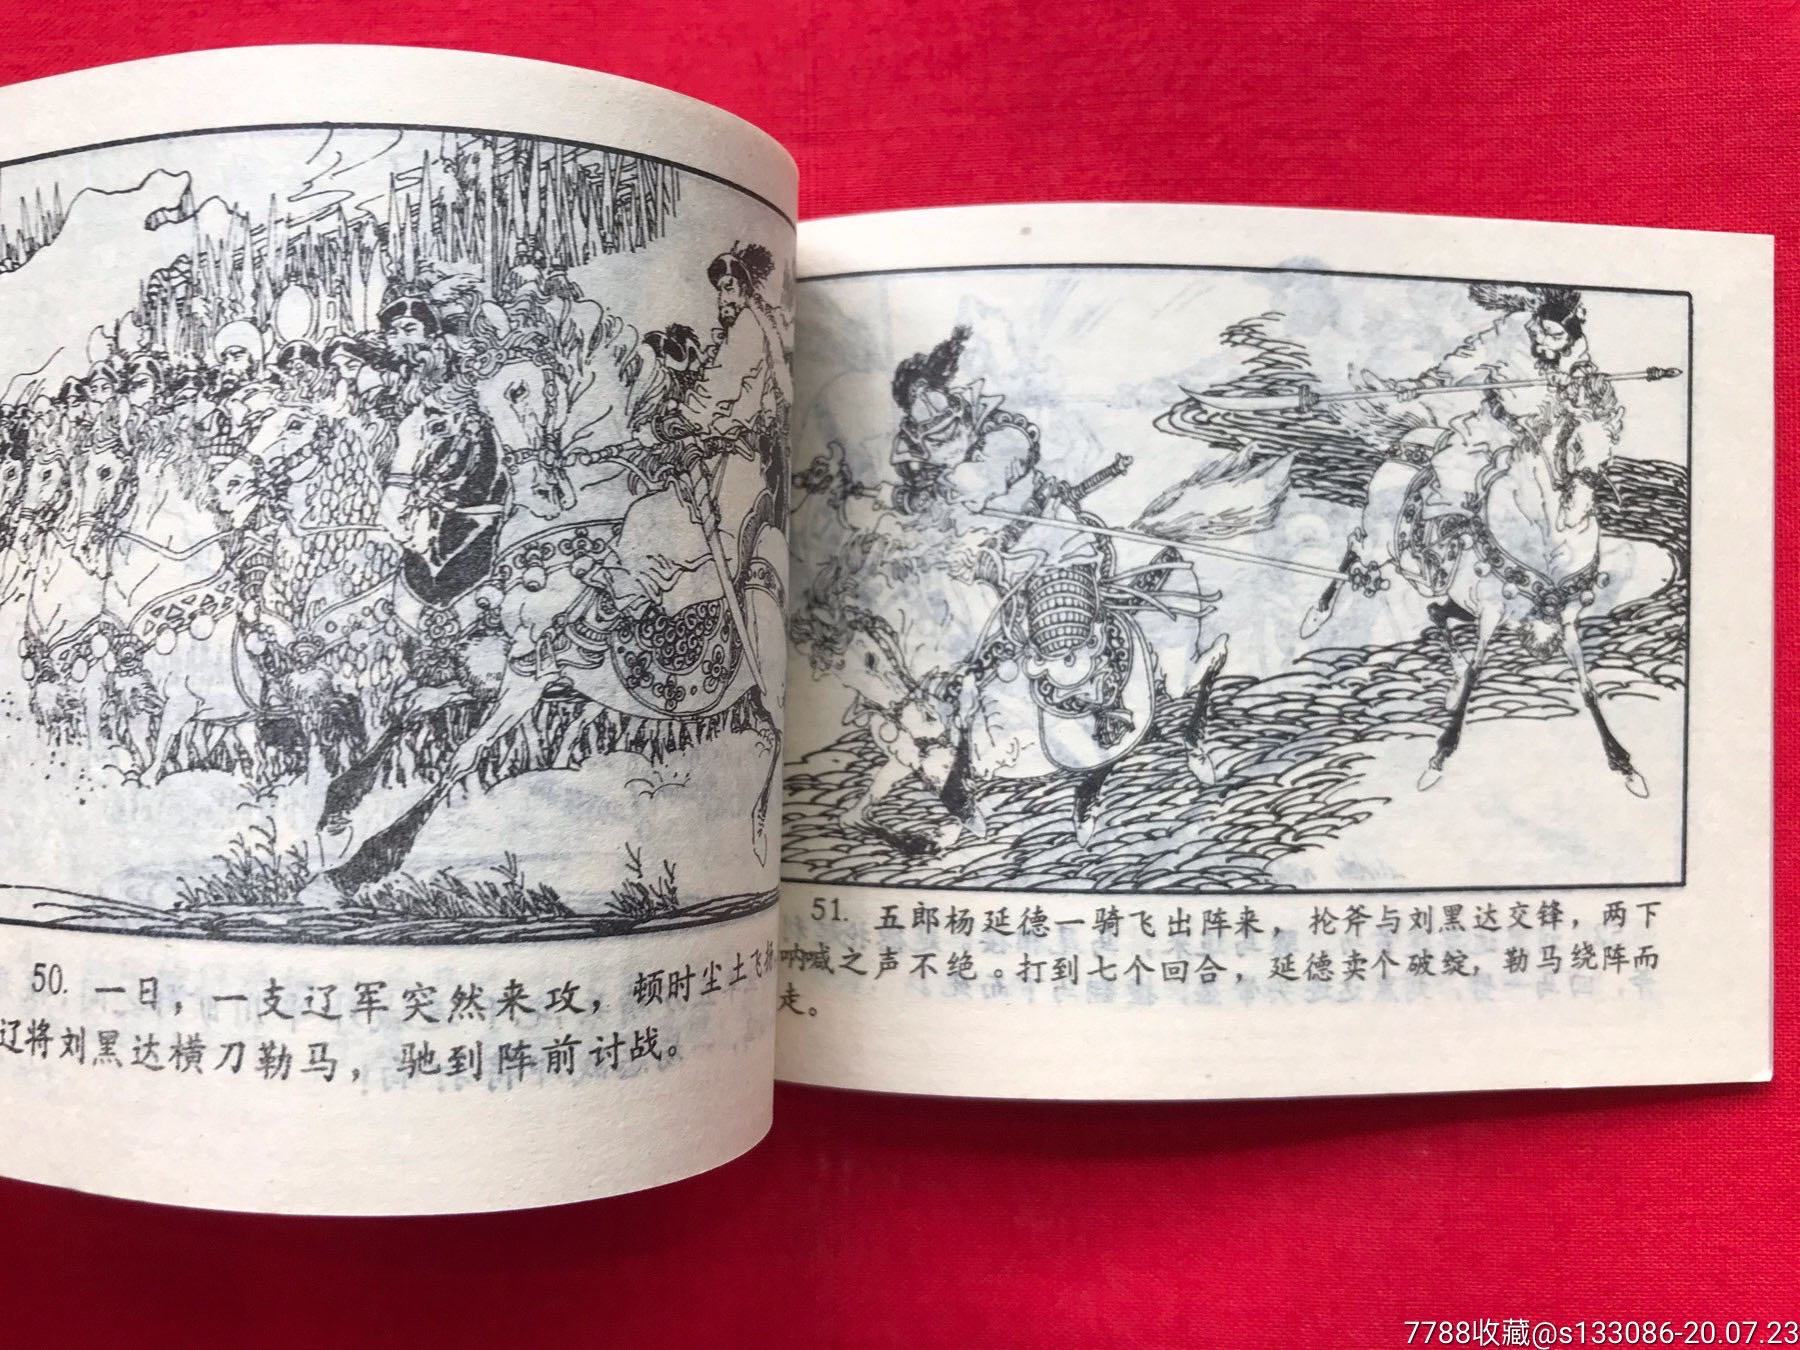 50. 一日，一支辽军突然来攻，顿时尘土飞扬
辽将刘黑达横刀勒马，驰到阵前讨战。
51. 五郎杨延德一骑飞出阵来，抡斧与刘黑达交锋，两下
呐喊之声不绝。打到七个回合，延德卖个破绽，勒马绕阵而
走。
7788收藏@s133086-20.07.23